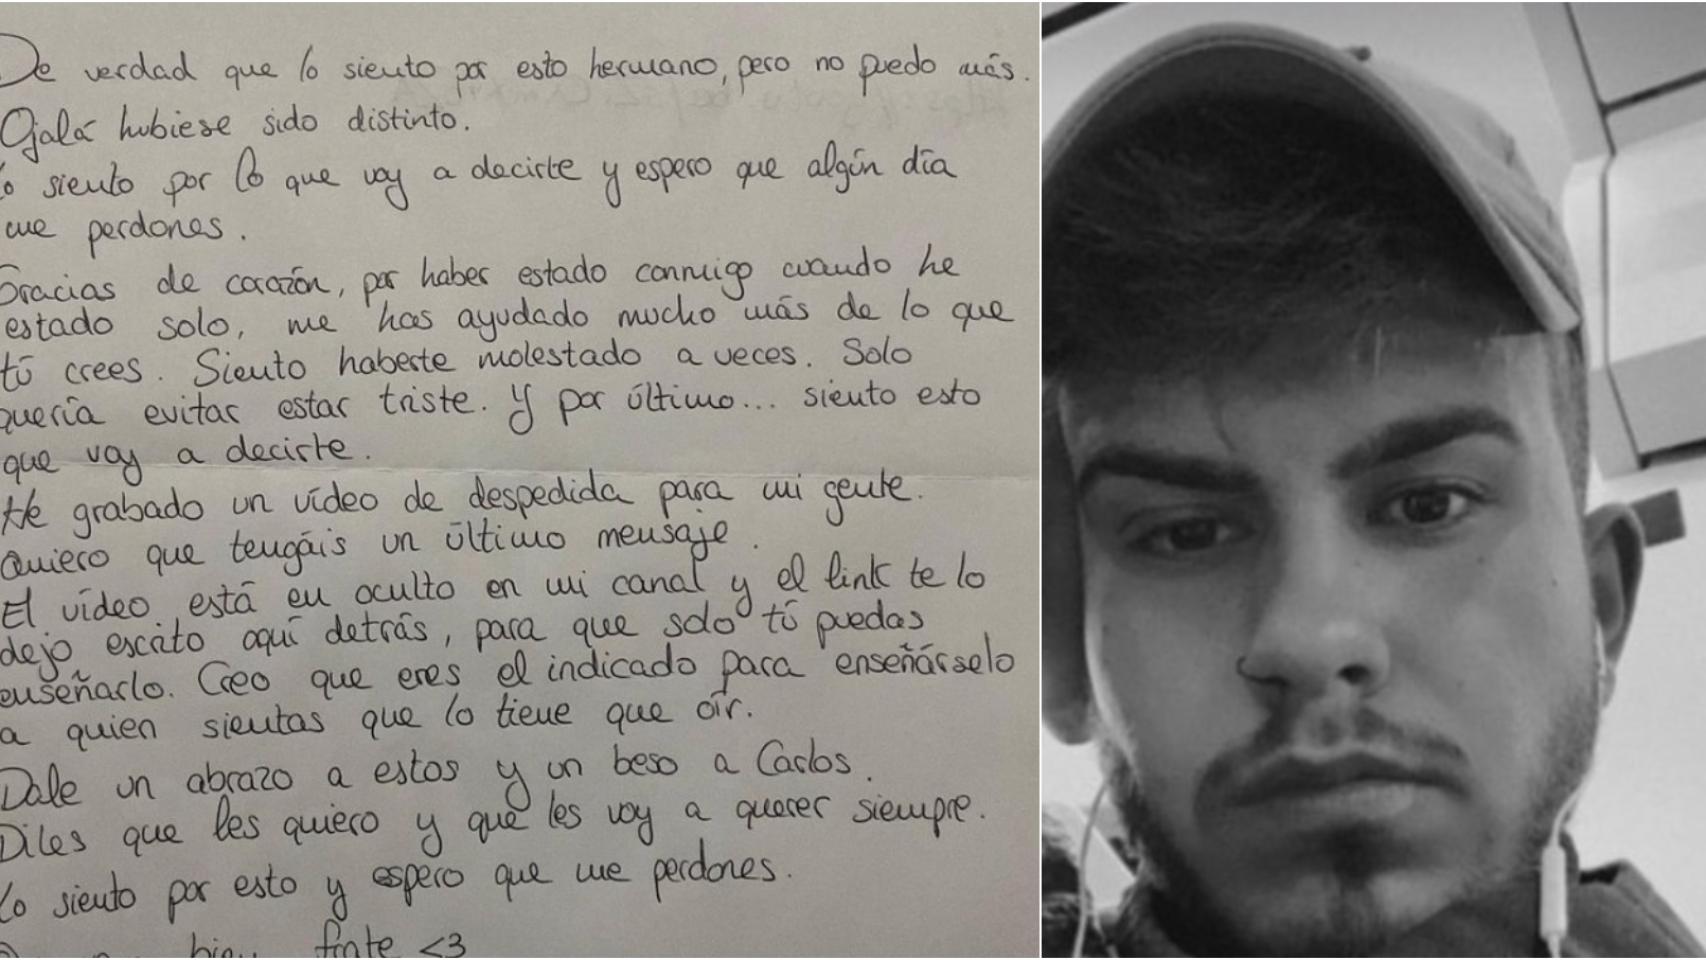 De verdad que lo siento por esto hermano, pero no puedo más.
Ojalá hubiese sido distinto.
Lo siento por lo que voy a decirte y espero que algún día
me perdones.
Gracias de corazón, por haber estado conmigo cuando he
estado solo, me has ayudado mucho más de lo que
tú crees. Siento haberte molestado a veces. Solo
quería evitar estar triste. Y por último... siento esto
que voy a decirte.
He grabado un vídeo de despedida para mi gente.
Quiero que tengáis un último mensaje.
El vídeo está en oculto en mi canal y el link te lo
dejo escrito aquí detrás, para que solo tú puedas
enseñarlo. Creo que eres el indicado para enseñárselo
a quien sientas que lo tiene que oír.
Dale un abrazo a estos y un beso a Carlos.
Diles que les quiero y que les voy a querer siempre.
Lo siento por esto y espero que me perdones.
bien frate <3